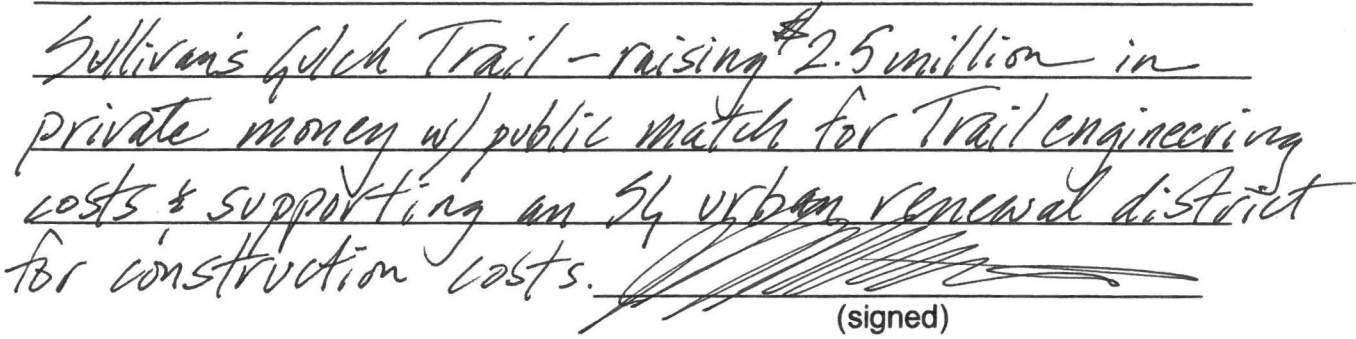 Sullivan's Gulch Trail - raising $2.5 million in
private money w/ public match for Trail engineering
costs & supporting an SG urban renewal district
for construction costs.
(signed)